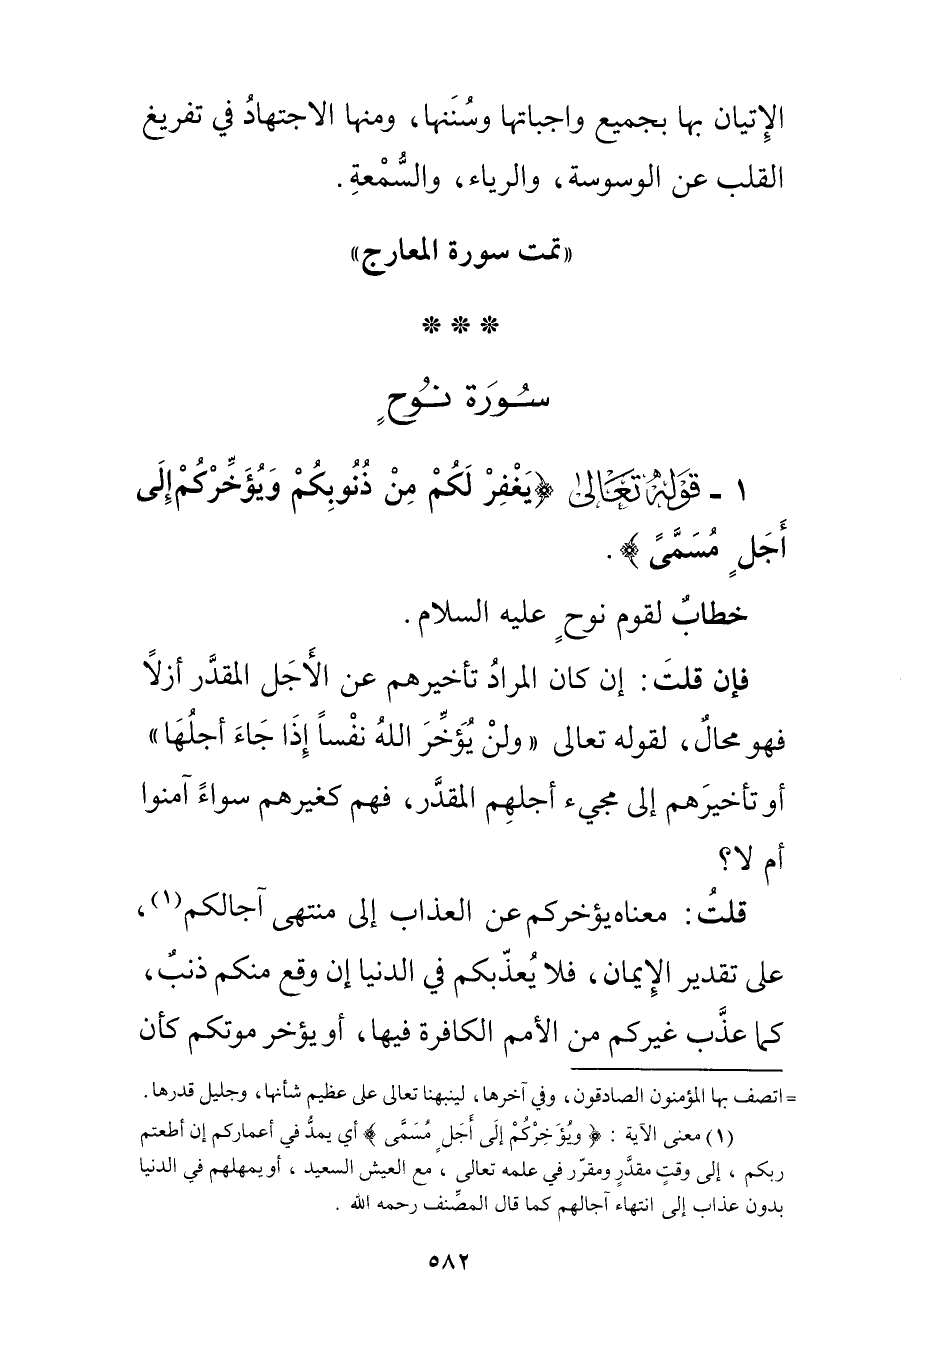 الإِتيان بها بجميع واجباتها وسُنَنها، ومنها الاجتهادُ في تفريغ
القلب عن الوسوسة، والرياء، والسُّمْعةِ.
«تمت سورة المعارج»
* * *
سُورَة نُوحٍ
١ - قَوْلُهُ تَعَالىٰ ﴿يَغْفِرْ لَكُمْ مِنْ ذُنُوبِكُمْ وَيُؤَخِّرْكُمْ إِلَى
أَجَلٍ مُسَمَّىً﴾.
خطابٌ لقوم نوحٍ عليه السلام.
فإن قلتَ: إن كان المرادُ تأخيرهم عن الأَجَل المقدَّر أزلاً
فهو محالٌ، لقوله تعالى «ولنْ يُؤَخِّرَ اللهُ نفْساً إِذَا جَاءَ أجلُهَا»
أو تأخيرَهم إلى مجيء أجلهِم المقدَّر، فهم كغيرهم سواءً آمنوا
أم لا؟
قلتُ: معناه يؤخركم عن العذاب إلى منتهى آجالكم(١)،
على تقدير الإِيمان، فلا يُعذّبكم في الدنيا إن وقع منكم ذنبٌ،
كما عذَّب غيركم من الأمم الكافرة فيها، أو يؤخر موتكم كأن
= اتصف بها المؤمنون الصادقون، وفي آخرها، لينبهنا تعالى على عظيم شأنها، وجليل قدرها.
(١) معنى الآية: ﴿ويُؤَخِرْكُمْ إلَى أَجَلٍ مُسَمَّى﴾ أي يمدُّ في أعماركم إن أطعتم
ربكم، إلى وقتٍ مقدَّرٍ ومقرّر في علمه تعالى، مع العيش السعيد، أو يمهلهم في الدنيا
بدون عذاب إلى انتهاء آجالهم كما قال المصِّنف رحمه الله.
٥٨٢